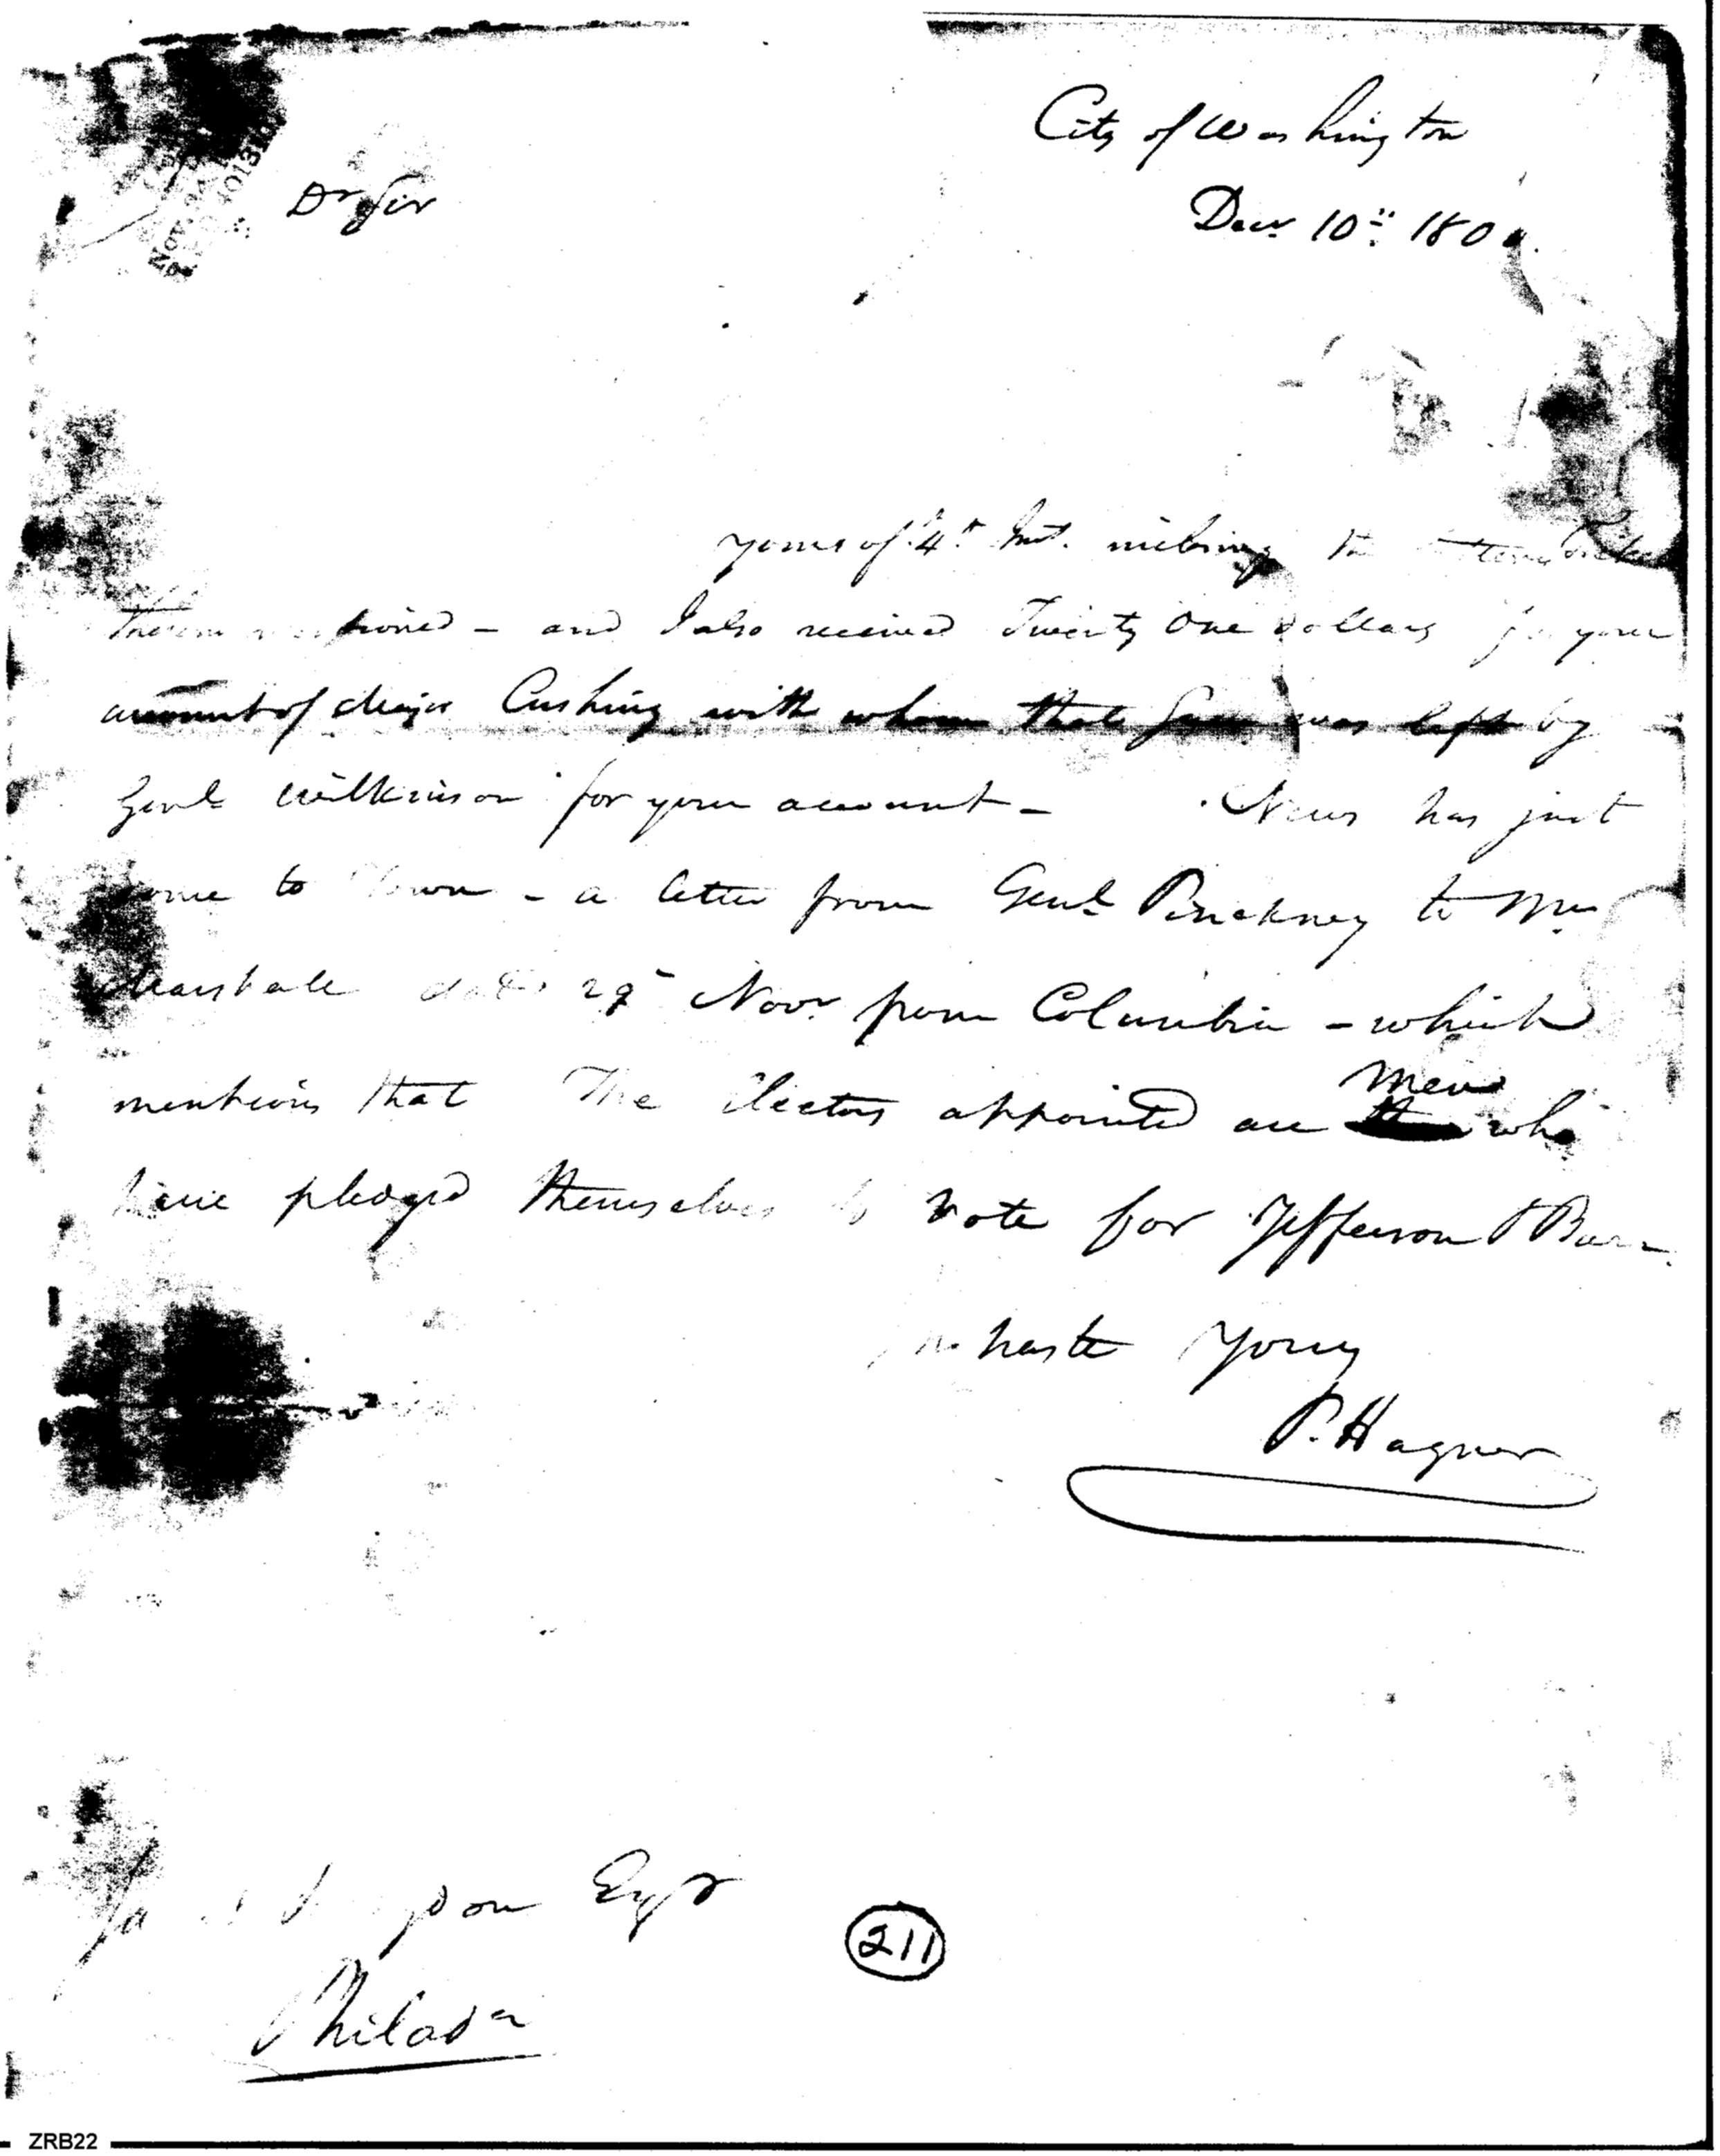 City of Washington
Decr 10th 1800.
Dr Sir
yours of 4th Inst. inclosing the
therein mentioned - and I also received Twenty One dollars for your
account of Major Cushing with whom that Sum was left by
Genl Wilkinson for your account -
News has just
come to Town - a letter from Genl Pinckney to Mr
Marshall dated 29 Novr from Columbia - which
mentions that The Electors appointed are men who
have pledged themselves to vote for Jefferson & Burr
In haste Yours
P. Hagner
Esqr
211
Philada
ZRB22